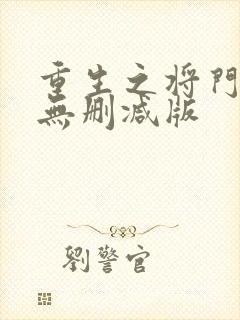 重生之将門
無删减版
劉警官